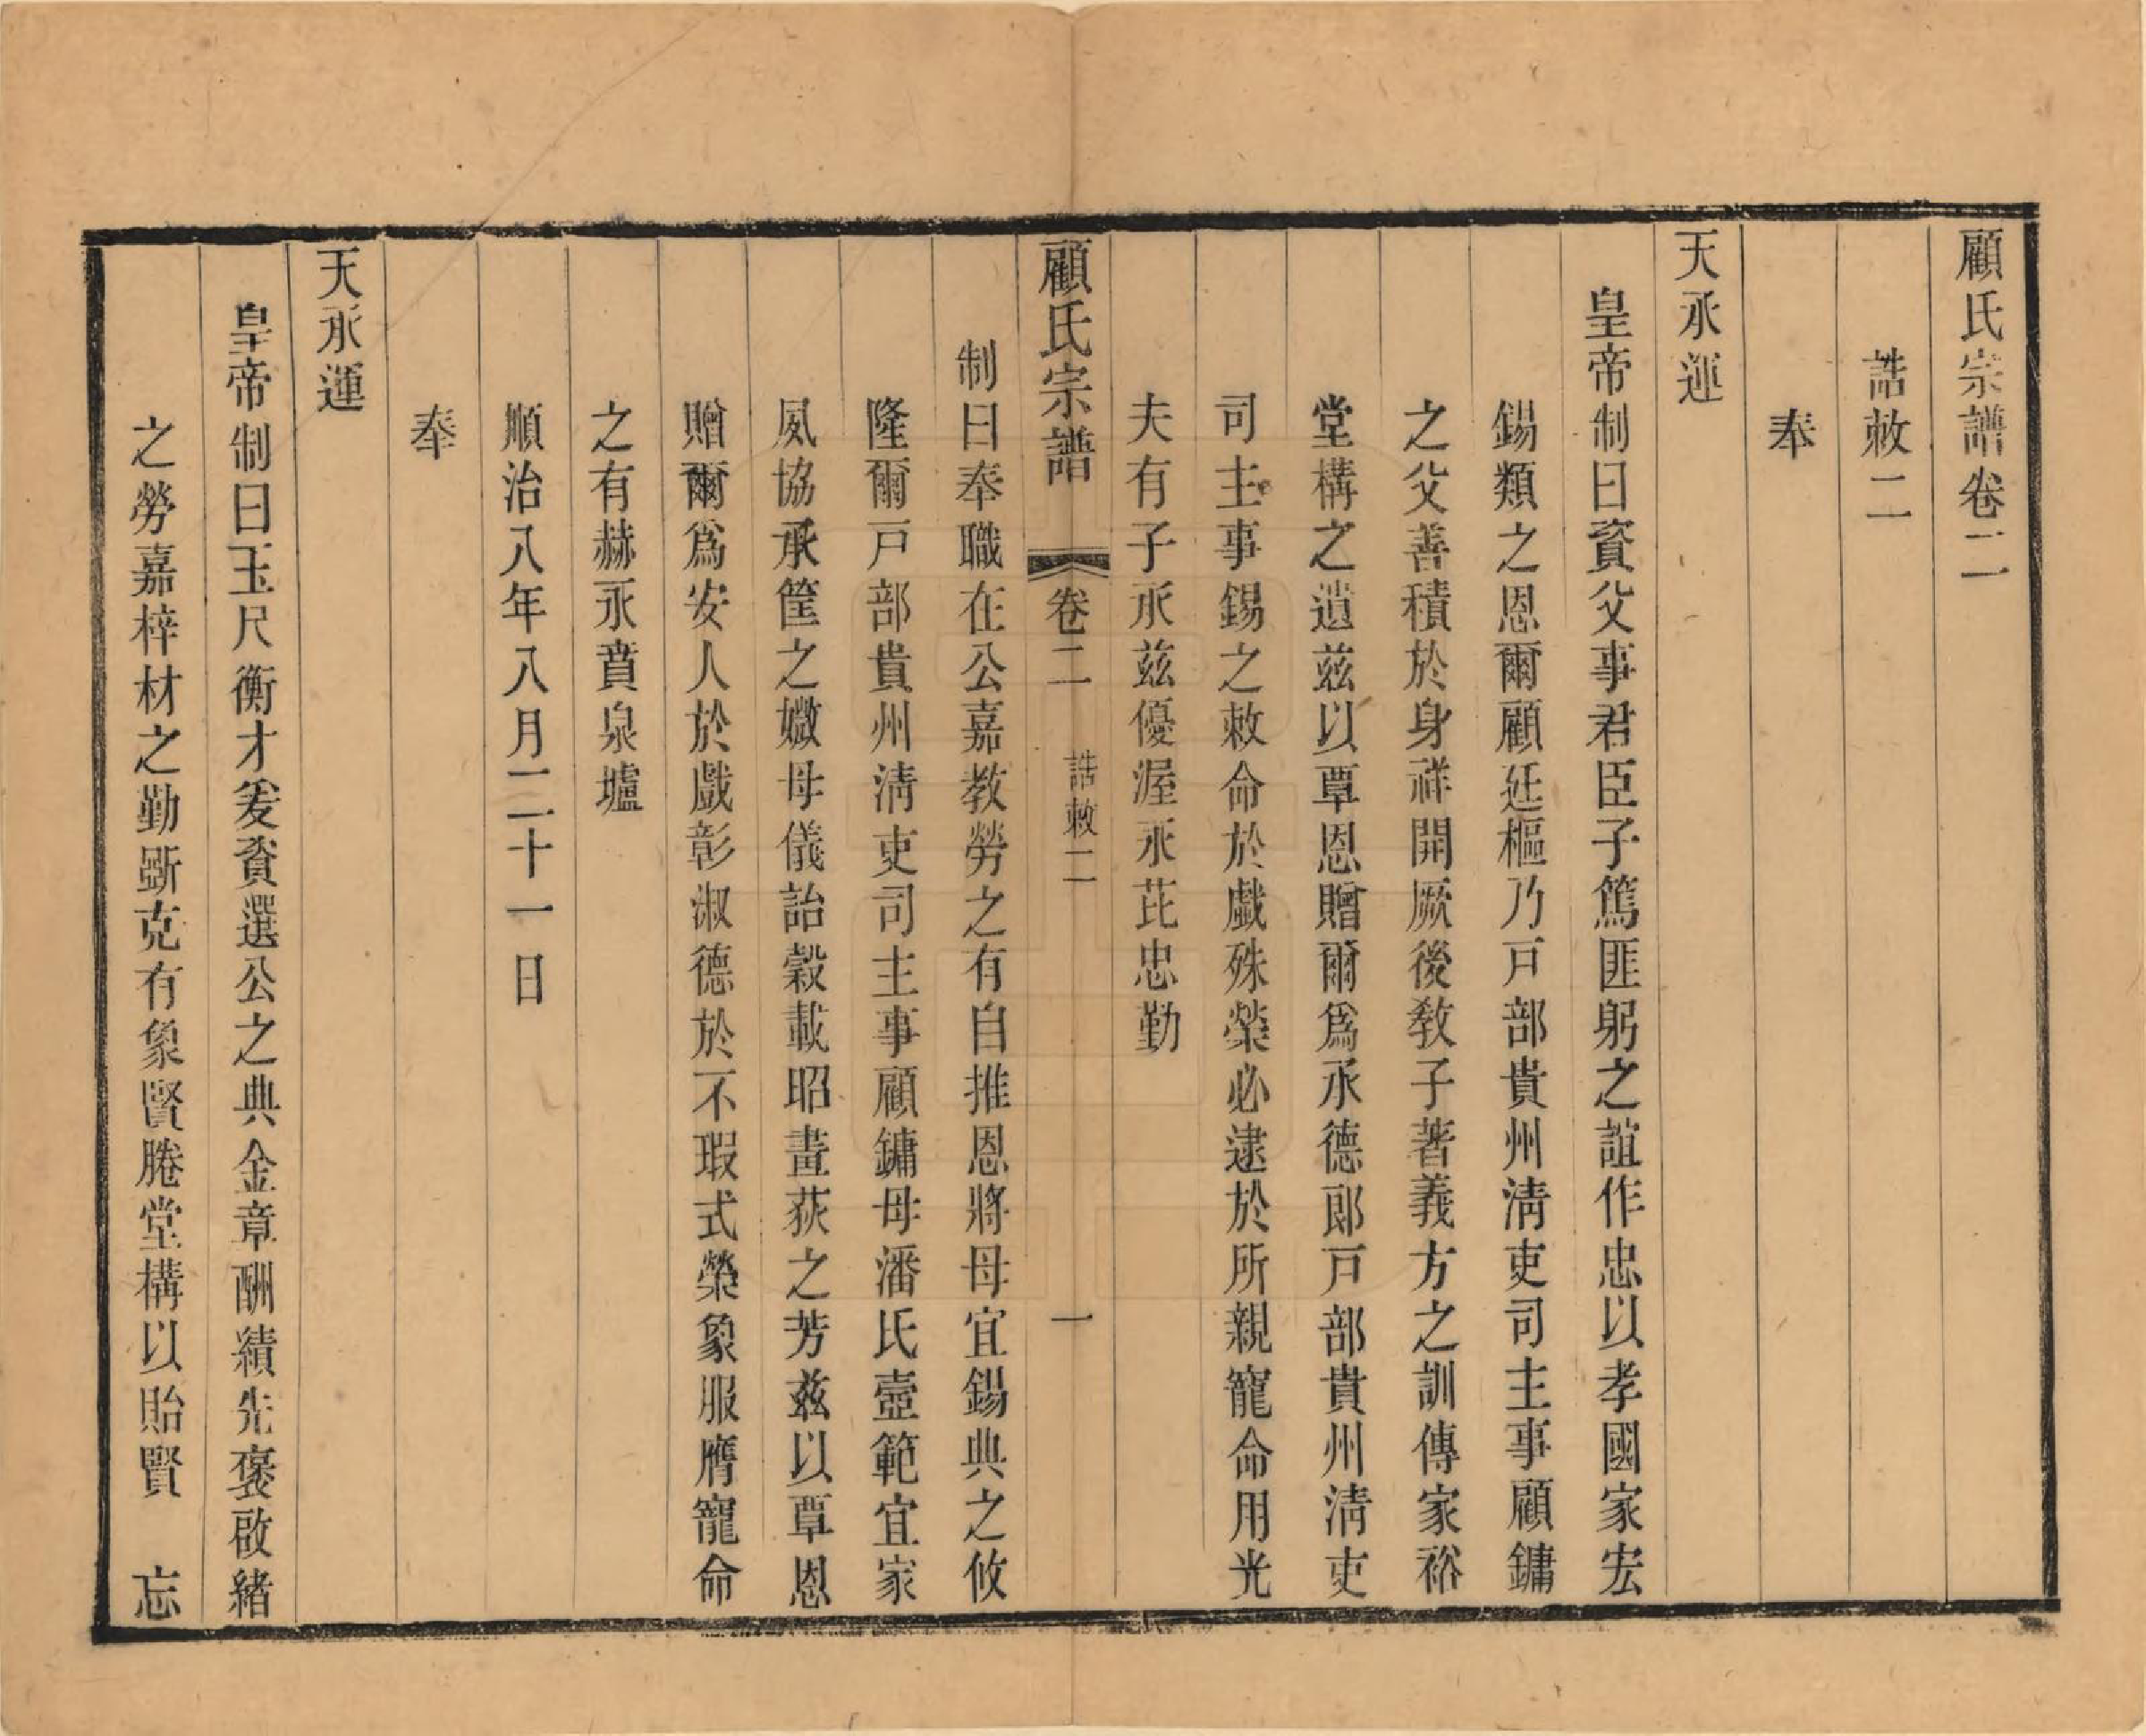 顧氏宗譜卷二
誥敕二
奉
天承運
皇帝制曰資父事君臣子篤匪躬之誼作忠以孝國家宏
錫類之恩爾顧廷樞乃戸部貴州淸吏司主事顧鏞
之父善積於身祥開厥後教子著義方之訓傳家裕
堂構之遺兹以覃恩贈爾爲承德郎戸部貴州淸吏
司主事錫之敕命於戲殊榮必逮於所親寵命用光
夫有子承兹優渥永芘忠勤
顧氏宗譜 卷二 誥敕二 一
制曰奉職在公嘉教勞之有自推恩將母宜錫典之攸
隆爾戸部貴州淸吏司主事顧鏞母潘氏壼範宜家
夙協承筐之媺母儀詒穀載昭畫荻之芳兹以覃恩
贈爾爲安人於戲彰淑德於不瑕式榮象服膺寵命
之有赫永賁泉壚
順治八年八月二十一日
奉
天承運
皇帝制曰玉尺衡才爰資選公之典金章酬績先褒啟緒
之勞嘉梓材之勤斲克有象賢勝堂構以貽賢 忘